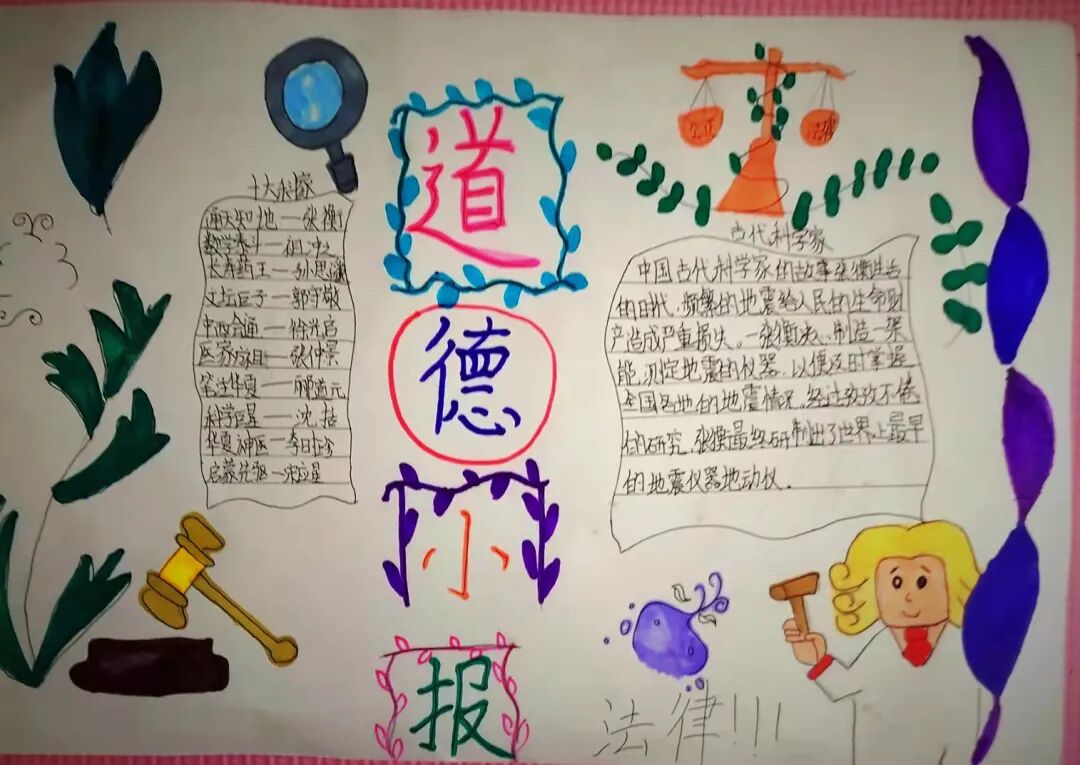 道
德
小
报
十大科家
通天知地—张衡
数学泰斗—祖冲之
长寿药王—孙思邈
文坛巨子—郭守敬
中西会通—徐光启
医家宗祖—张仲景
笔注华夏—郦道元
科学巨星—沈括
华夏神医—李时珍
启蒙先驱—宋应星
公正
法律
古代科学家
中国古代科学家的故事张衡生活
的时代,频繁的地震给人民的生命财
产造成严重损失。一张衡决心制造一架
能测定地震的仪器,以便及时掌握
全国各地的地震情况。经过孜孜不倦
的研究,张衡最终研制出了世界上最早
的地震仪器地动仪。
法律!!!